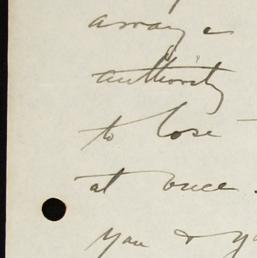 arrange
authority
to lose -
at once.
you & yo